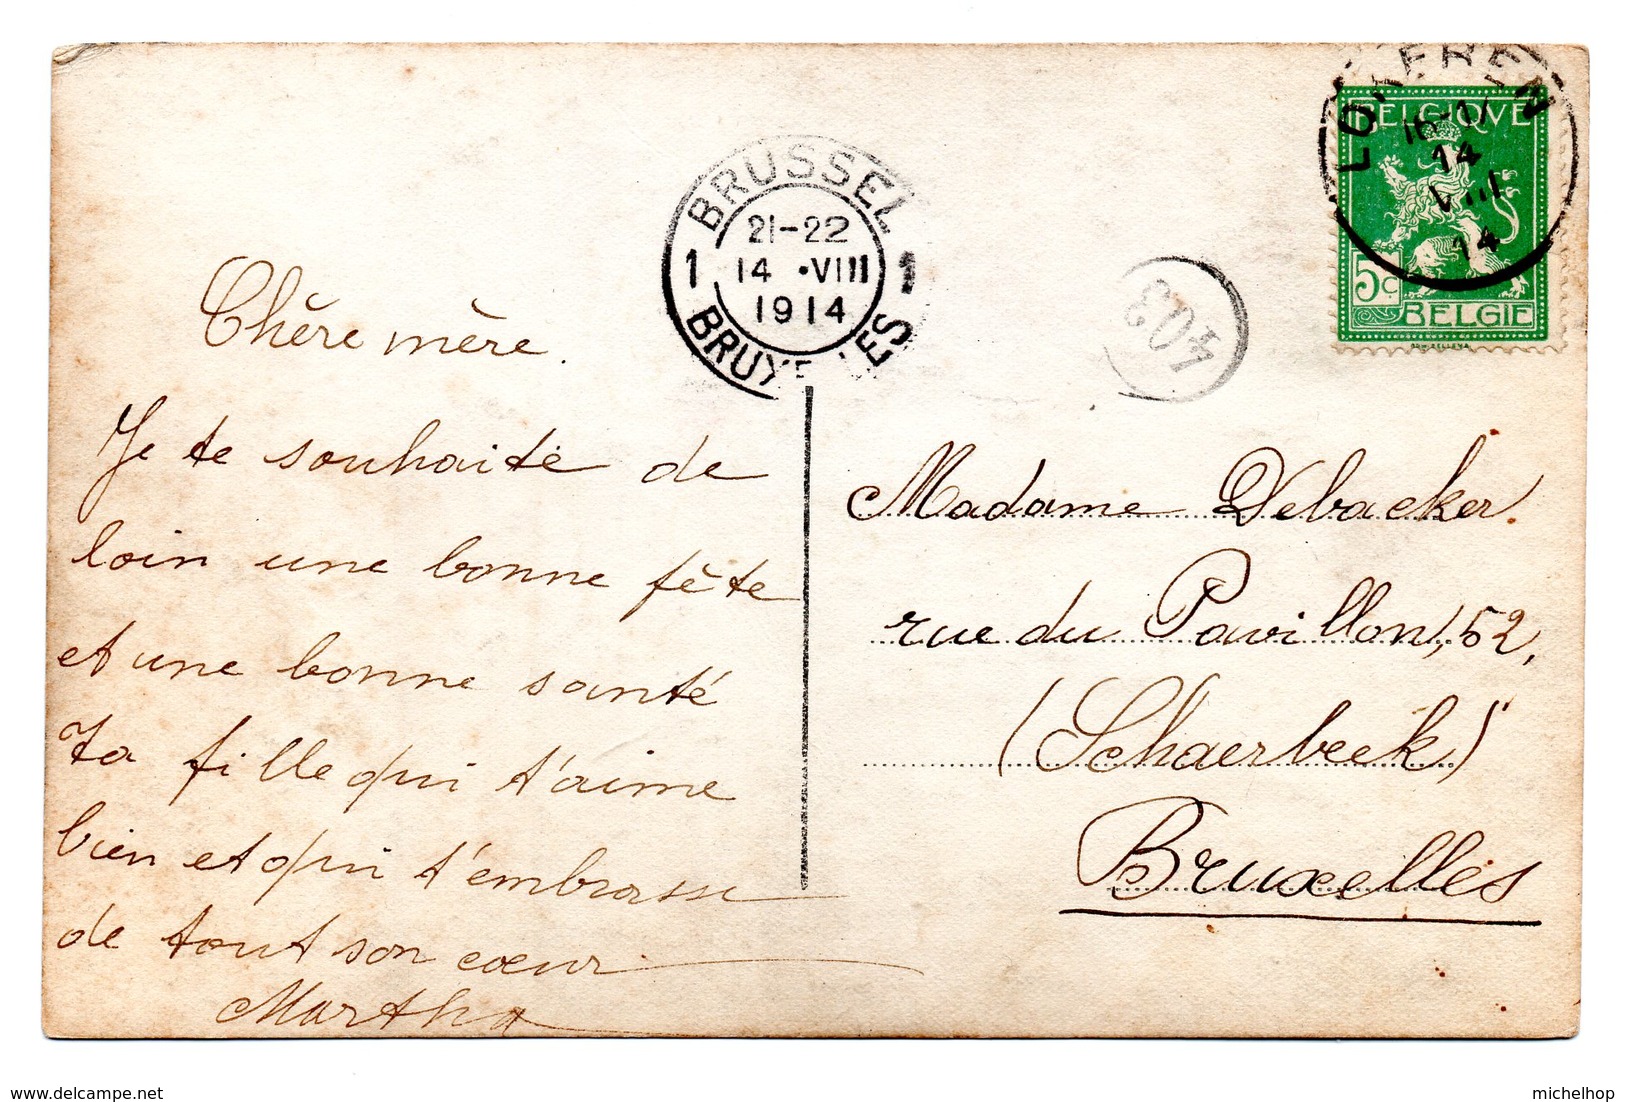 LOKEREN
16-17
14
VIII
14
BELGIQVE
5c
BELGIE
BRUSSEL
1 1
21-22
14 ·VIII
1914
BRUXELLES
403
Chère mère.
Je te souhaite de
loin une bonne fête
et une bonne santé
Ta fille qui t'aime
bien et qui t'embrasse
de tout son cœur.
Martha
Madame Debacker.
rue du Pavillon, 52,
(Schaerbeek)
Bruxelles
delcampe.net
michelhop